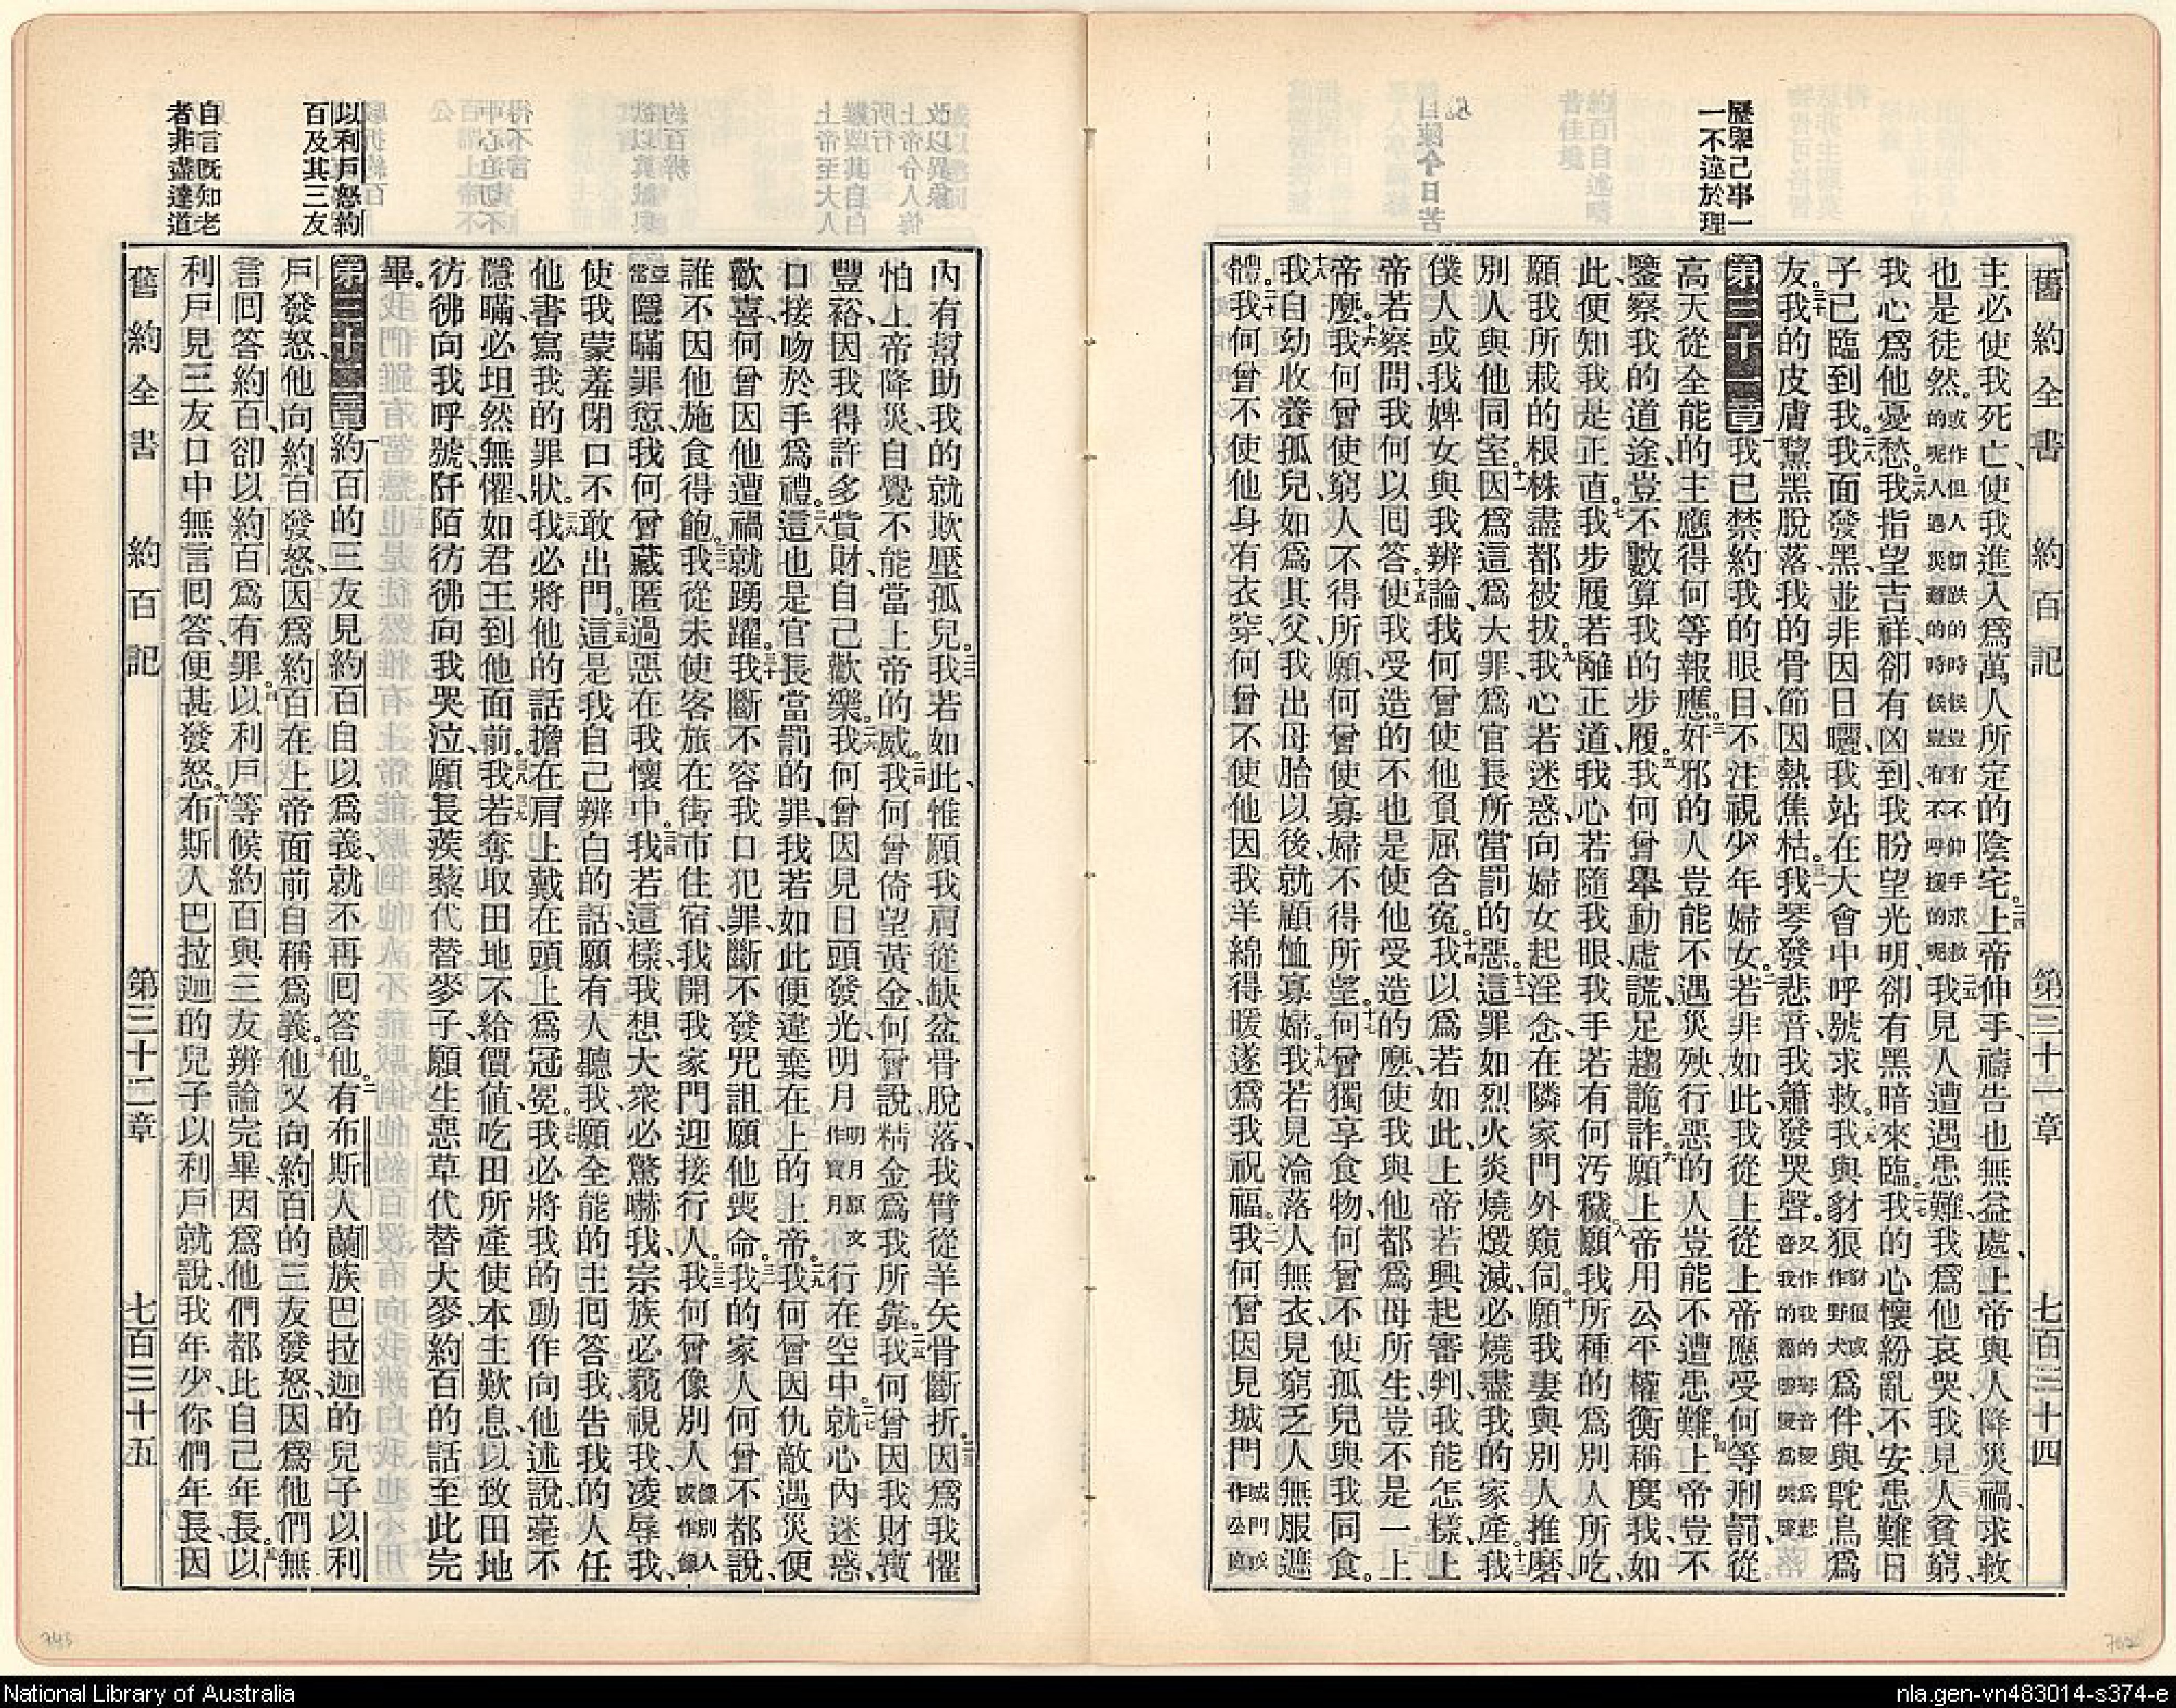 歷舉己事一
一不違於理
舊約全書 約百記 第三十一章 七百三十四
主必使我死亡、使我進入爲萬人所定的陰宅。二四上帝伸手、禱告也無益處、上帝與人降災禍、求救
也是徒然。或作但人傾跌的時候豈不伸手求救的呢人遇災難的時候豈有不呼援的呢二五我見人遭遇患難、我爲他哀哭、我見人貧窮、
我心爲他憂愁。二六我指望吉祥、卻有凶到、我盼望光明、卻有黑暗來臨。二七我的心懷紛亂不安、患難日
子已臨到我。二八我面發黑、並非因日曬、我站在大會中呼號求救。二九我與豺狼豺狼或作野犬爲伴、與鴕鳥爲
友。三十我的皮膚黧黑脫落、我的骨節因熱焦枯。三一我琴發悲音、我簫發哭聲。又作我的琴音變爲悲音我的簫聲變爲哭聲
第三十一章一我已禁約我的眼目、不注視少年婦女。二若非如此、我從上從上帝應受何等刑罰、從
高天從全能的主應得何等報應。三奸邪的人豈能不遇災殃、行惡的人豈能不遭患難。四上帝豈不
鑒察我的道途、豈不數算我的步履。五我何曾舉動虛謊、足趨詭詐。六願上帝用公平權衡稱度我、如
此、便知我是正直。七我步履若離正道、我心若隨我眼、我手若有何汚穢。八願我所種的爲別人所吃、
願我所栽的根株盡都被拔。九我心若迷惑向婦女起淫念、在隣家門外窺伺。十願我妻與別人推磨、
別人與他同室。十一因爲這爲大罪、爲官長所當罰的惡。十二這罪如烈火炎燒燬滅、必燒盡我的家產。十三我
僕人或我婢女與我辨論、我何曾使他負屈含冤。十四我以爲若如此、上帝若興起審判、我能怎樣、上
帝若察問、我何以回答。十五使我受造的不也是使他受造的麽、使我與他都爲母所生、豈不是一上
帝麽。十六我何曾使窮人不得所願、何曾使寡婦不得所望。十七何曾獨享食物、何曾不使孤兒與我同食。
十八我自幼收養孤兒、如爲其父、我出母胎以後、就顧恤寡婦。十九我若見淪落人無衣、見窮乏人無服遮
體。二十我何曾不使他身有衣穿、何曾不使他因我羊綿得暖、遂爲我祝福。二一我何曾因見城門城門或作公庭
以利戶怒約
百及其三友
自言既知老
者非盡達道
內有幫助我的就欺壓孤兒。二二我若如此、惟願我肩從缺盆骨脫落、我臂從羊矢骨斷折。二三因爲我懼
怕上帝降災、自覺不能當上帝的威。二四我何曾倚望黃金、何曾說精金爲我所靠。二五我何曾因我財寶
豐裕、因我得許多貲財自己歡樂。二六我何曾因見日頭發光、明月明月原文作寶月行在空中。二七就心內迷惑、
口接吻於手爲禮。二八這也是官長當罰的罪、我若如此便違棄在上的上帝。二九我何曾因仇敵遇災便
歡喜、何曾因他遭禍就踴躍。三十我斷不容我口犯罪、斷不發咒詛願他喪命。三一我的家人何曾不都說、
誰不因他施食得飽。三二我從未使客旅在街市住宿、我開我家門迎接行人。三三我何曾像別人像別人或作像
亞當隱瞞罪愆、我何曾藏匿過惡在我懷中。三四我若這樣、我想大衆必驚嚇我、宗族必藐視我、凌辱我、
使我蒙羞閉口不敢出門。三五這是我自己辨白的話、願有人聽我、願全能的主回答我、吿我的人任
他書寫我的罪狀。三六我必將他的話擔在肩上戴在頭上爲冠冕。三七我必將我的動作向他述說、毫不
隱瞞、必坦然無懼、如君王到他面前。三八我若奪取田地不給價值、三九吃田所產使本主歎息、以致田地
彷彿向我呼號、阡陌彷彿向我哭泣、四十願長蒺藜代替麥子、願生惡草代替大麥、約百的話至此完
畢。
第三十二章一約百的三友見約百自以爲義、就不再回答他。二有布斯人蘭族巴拉迦的兒子以利
戶發怒、他向約百發怒、因爲約百在上帝面前自稱爲義。三他又向約百的三友發怒、因爲他們無
言回答約百、卻以約百爲有罪。四以利戶等候約百與三友辨論完畢、因爲他們都比自己年長。五以
利戶見三友口中無言回答便甚發怒。六布斯人巴拉迦的兒子以利戶就說、我年少、你們年長、因
舊約全書 約百記 第三十二章 七百三十五
National Library of Australia
nla.gen-vn483014-s374-e